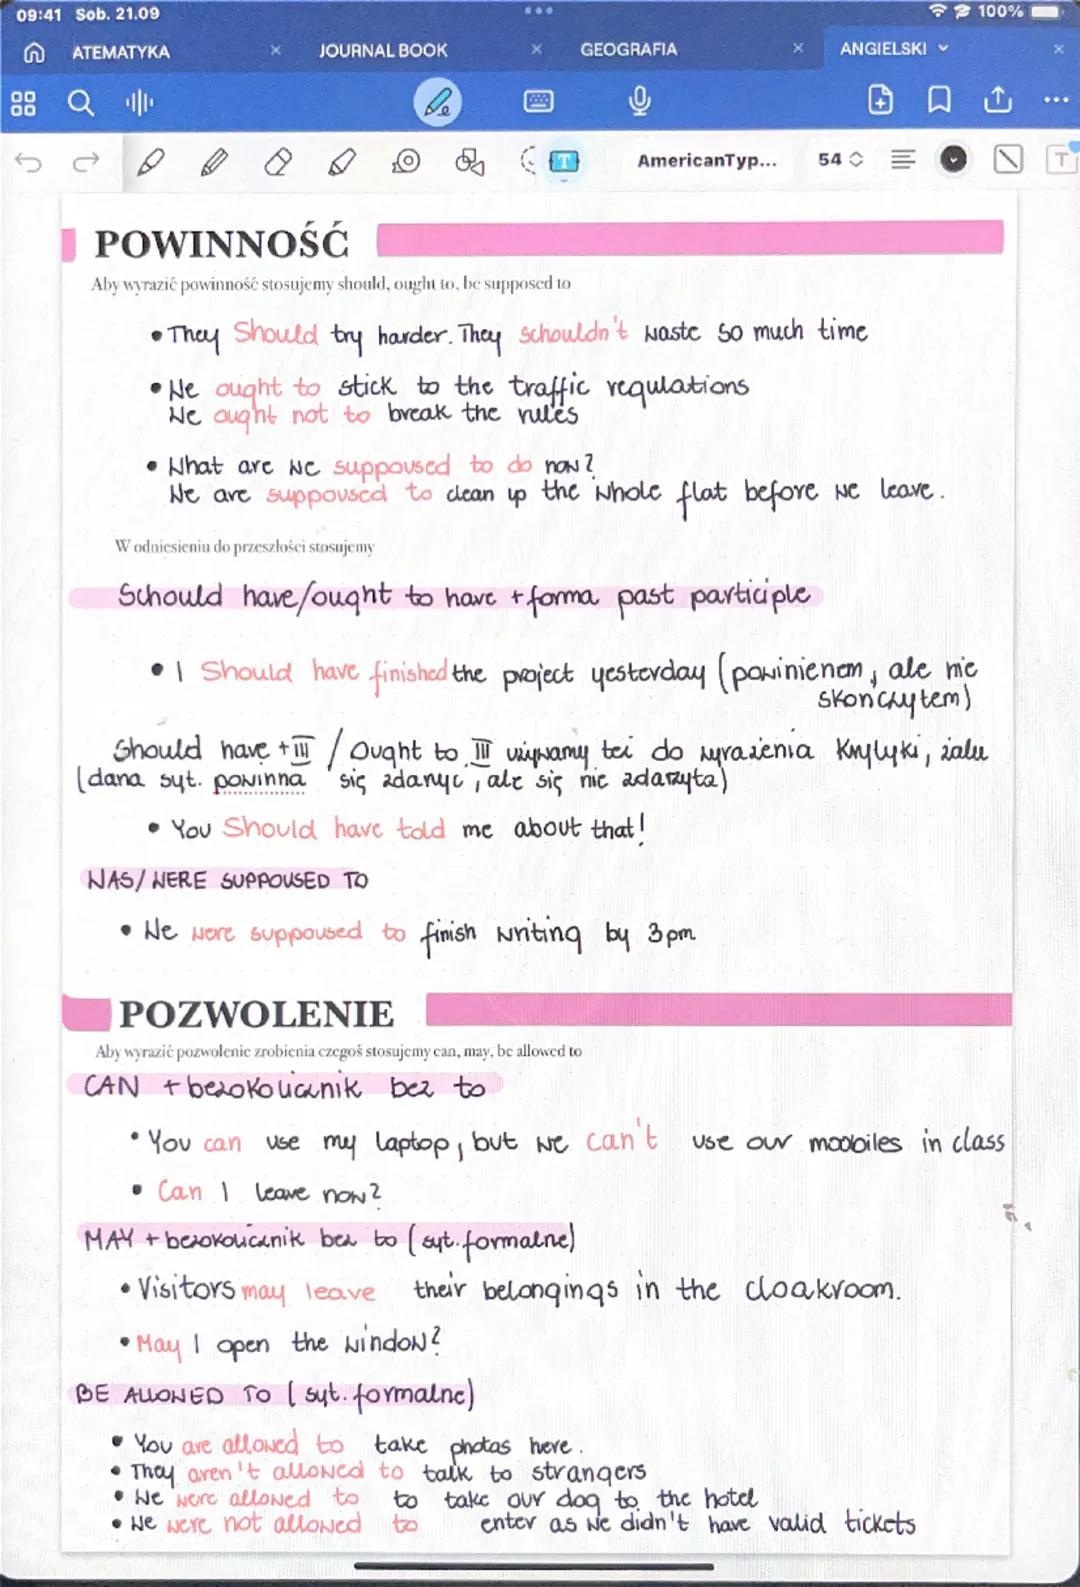 09:41 Sob. 21.09
100%
ATEMATYKA
JOURNAL BOOK
GEOGRAFIA
ANGIELSKI
AmericanTyp...
54
POWINNOŚĆ
Aby wyrazić powinność stosujemy should, ought to, be supposed to
• They Should try harder. They schouldn't waste so much time
• We ought to stick to the traffic regulations
We ought not to break the rules
• What are we suppoused to do now?
We are suppoused to clean up the whole flat before we leave.
W odniesieniu do przeszłości stosujemy
Schould have/ought to have + forma past participle
• I Should have finished the project yesterday (powinienem, ale nie
skończyłem)
Should have + III / Ought to III używamy też do wyrażenia krytyki, żalu
(dana syt. powinna się zdarzyć, ale się nie zdarzyła)
• You Should have told me about that!
WAS/WERE SUPPOUSED TO
• We were suppoused to finish writing by 3pm
POZWOLENIE
Aby wyrazić pozwolenie zrobienia czegoś stosujemy can, may, be allowed to
CAN + bezokolicznik bez to
• You can use my laptop, but we can't use our moobiles in class
• Can I leave now?
MAY + bezokolicznik bez to (syt. formalne)
• Visitors may leave their belongings in the cloakroom.
• May I open the window?
BE ALLOWED TO (syt. formalne)
• You are allowed to take photos here.
• They aren't allowed to talk to strangers
• We were allowed to to take our dog to the hotel
• We were not allowed to enter as we didn't have valid tickets